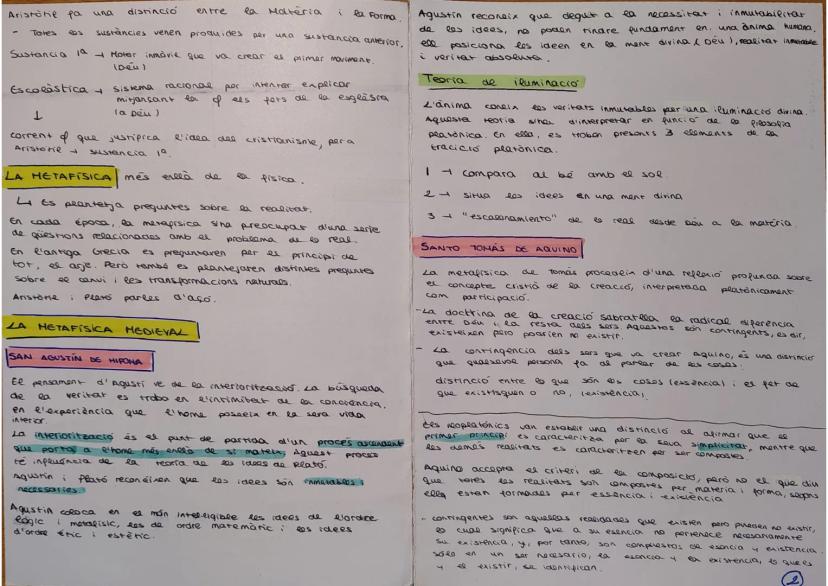 Aristòtil fa una distinció entre la Matèria i la Forma.
- Totes les sustàncies venen produides per una sustancia anterior.
Sustancia 1ª → Motor inmòvil que va crear es primer moviment.
(Déu)
Escolàstica → sistema racional per intentar explicar
mitjansant la φ els fets de la església
(a Déu)
↓
corrent φ que justifica l'idea del cristianisme, per a
Aristòtil → sustància 1ª.
LA METAFÍSICA més enllà de la física.
↳ Es planteja preguntes sobre la realitat.
En cada època, la metafísica s'ha preocupat d'una serie
de qüestions relacionades amb el problema de lo real.
En l'antiga Grecia es preguntaren per el principi de
tot, el arjé. Però també es plantejaren distintes preguntes
sobre el canvi i les transformacions naturals.
Aristòtil i Plató parlen d'açò.
LA METAFÍSICA MEDIEVAL
SAN AGUSTÍN DE HIPONA
El pensament d'Agustí ve de la interiorització. La búsqueda
de la veritat es troba en l'intimitat de la conciència,
en l'experiència que l'home poseeix en la seva vida
interior.
La interiorització és el punt de partida d'un procés ascendent
que porta a l'home més enllà de si mateix, Aquest procés
té influència de la teoria de las idees de Plató.
Agustín i Plató reconeixen que les idees són inmutables i
necessaries.
Agustín coloca en el món intel·ligible les idees de l'ordre
lògic i metafísic, les de ordre matemàtic i les idees
d'ordre ètic i estètic.
Agustín reconeix que degut a la necessitat i inmutabilitat
de les idees, no poden tindre fundament en una ànima humana,
ell posiciona les ideen en la ment divina (Déu), realitat inmutable
i veritat absoluta.
Teoría de iluminació
L'ànima coneix les veritats inmutables per una iluminació divina.
Aquesta teoria s'ha d'interpretar en funció de la filosofia
platònica. En ella, es troban presents 3 elements de la
tracició platònica.
1 → compara al bé amb el sol.
2 → situa les idees en una ment divina
3 → "escalonamiento" de lo real desde Déu a la matèria.
SANTO TOMÁS DE AQUINO
La metafísica de Tomás procedeix d'una reflexió profunda sobre
el concepte cristià de la creacció, interpretada platònicament
com participació.
- La doctrina de la creació sabratlla la radical diferència
entre Déu i la resta dels sers Aquestos són contingents, es dir,
existeixen pero podrien no existir.
- La contingència dels sers que va crear Aquino, és una distinció
que qualsevol persona fa al parlar de les coses.
distinció entre lo que són les coses (essència) i el fet de
que existisquen o no, (existència).
Els neoplatònics van establir una distinció al afirmar que el
primer principi es caracteritza per la seva simplicitat, mentre que
les demás realitats es caracteritzen per ser compostes
Aquino accepta el criteri de la composició, però no el que diu
que totes les realitats són compostes per materia i forma, segons
ell, estan formades per essència i existència
- contingentes són aquellas realidades que existen pero pueden no existir,
lo cual significa que a su esencia no pertenece necesariamente
su existencia, y, por tanto, son compuestos de esencia y existencia.
Sólo en un ser necesario, la esencia y la existencia, lo que es
y el existir, se identifican.
2